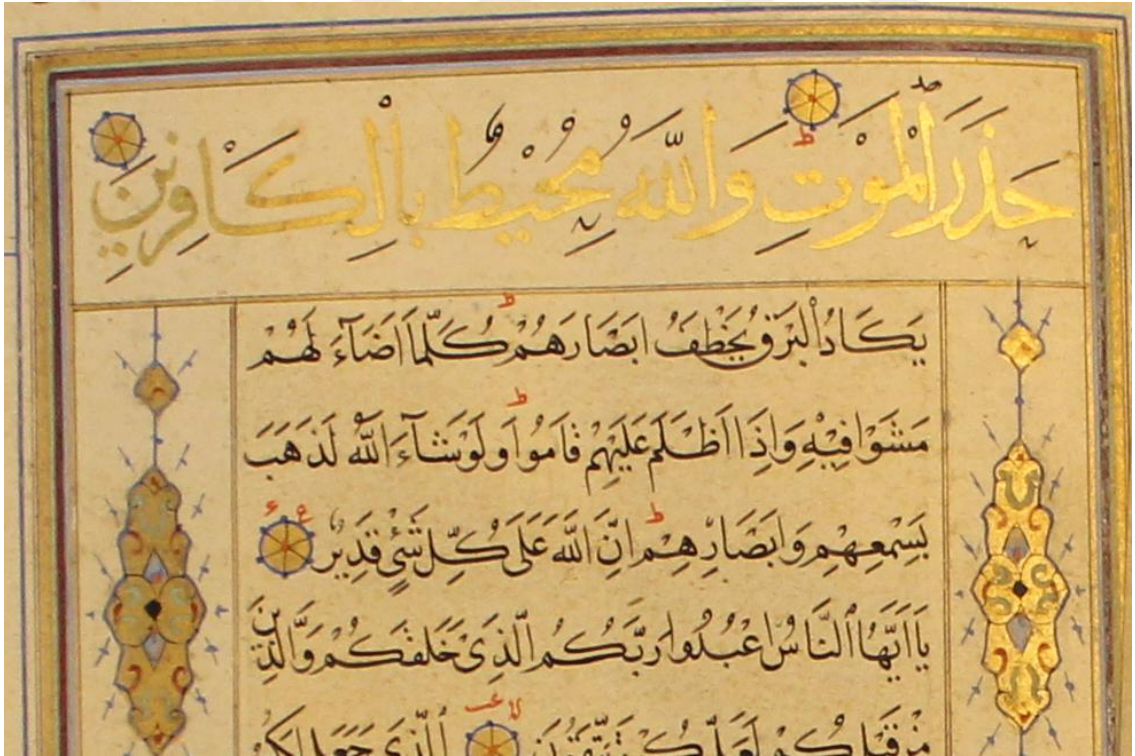 حَذَرَ الْمَوْتِ ط وَاللّٰهُ مُحِيطٌ بِالْكَافِرِينَ
يَكَادُ الْبَرْقُ يَخْطَفُ ابَصَارَهُمْ ط كُلَّمَا اَضَاۤءَ لَهُمْ
مَشَوْا فِيْهِ وَاِذَا اَظْلَمَ عَلَيْهِمْ قَامُوا ط وَلَوْ شَاۤءَ اللّٰهُ لَذَهَبَ
بِسَمْعِهِمْ وَابَصَارِهِمْ ط اِنَّ اللّٰهَ عَلَى كُلِّ شَيْءٍ قَدِيرٌ
يَا اَيُّهَا النَّاسُ اعْبُدُوا رَبَّكُمُ الَّذِى خَلَقَكُمْ وَالَّذِينَ
مِنْ قَبْلِكُمْ لَعَلَّكُمْ تَتَّقُونَ الَّذِى جَعَلَ لَكُمُ